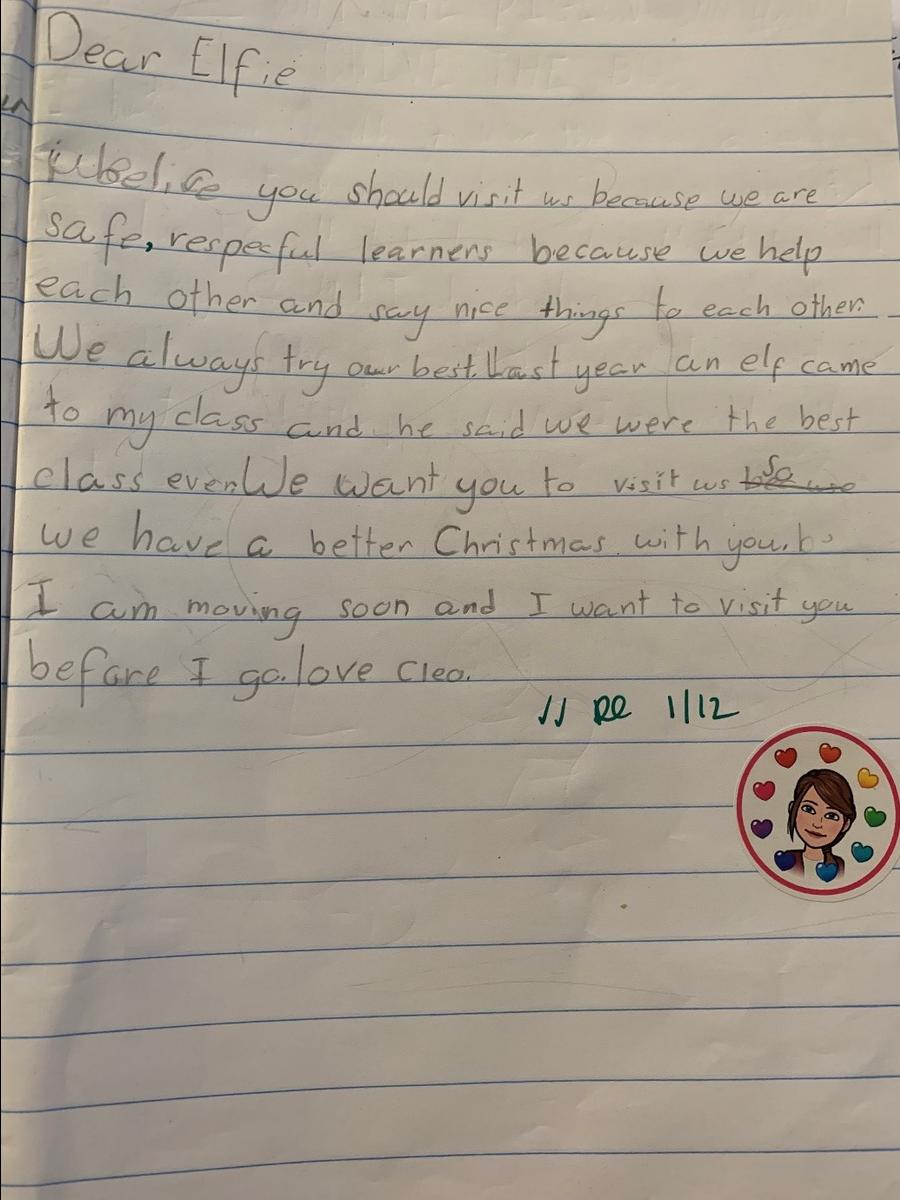 Dear Elfie
you should visit us because we are
safe, respecful learners because we help
each other and say nice things to each other.
We always try our best. Last year an elf came
to my class and he said we were the best
class ever. We want you to visit us so
we have a better Christmas with you.
I am moving soon and I want to visit you
before I go. love Cleo.
RR 1/12